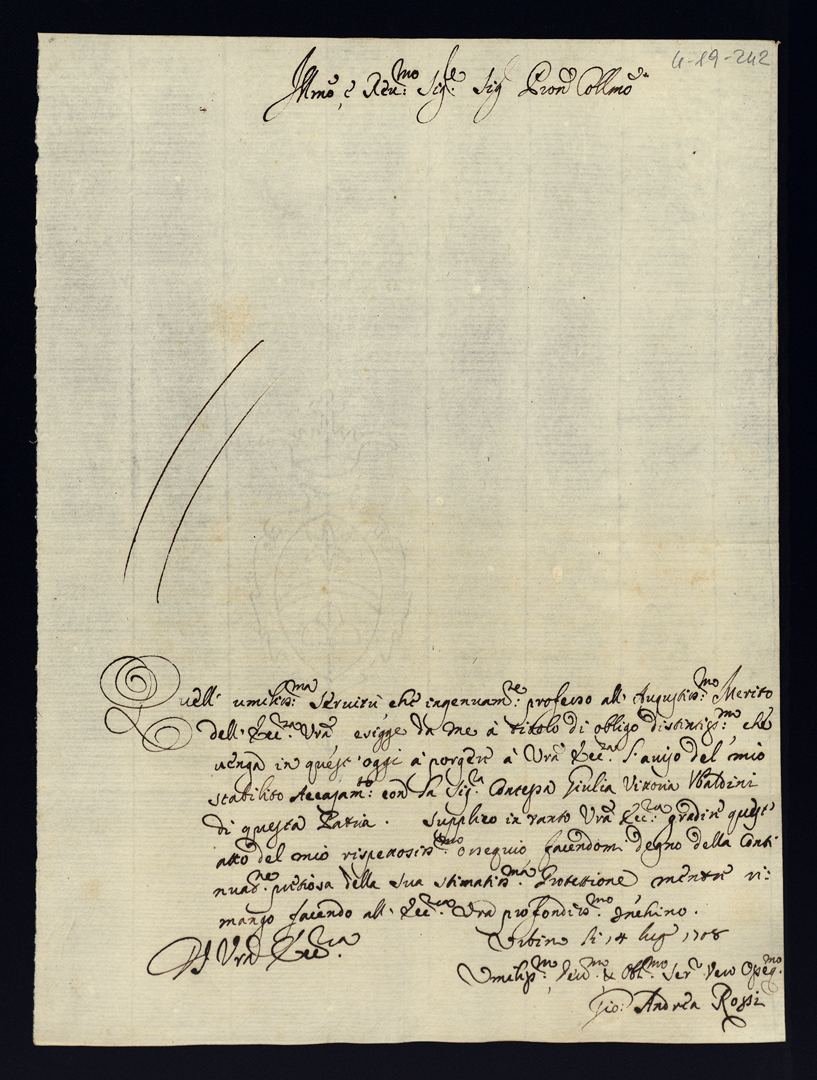 4-19-242
Illmo, e Reu:mo Sig:e Sig Pron Collmo
Quell' umiliss:ma Seruitù che ingenuam:te professo all' Augustiss:mo Merito
dell' Ecc:za Vrã esigge da me à titolo di obligo distintiss:mo che
uenga in quest' oggi à porgere à Vrã Ecc:za l'auiso del mio
stabilito Accasam:to con la Sig:a Contessa Giulia Vittoria Vbaldini
di questa Patria. Supplico in tanto Vrã Ecc:za gradire quest'
atto del mio rispettosiss:mo ossequio facendomi degno della Conti
nuaz:ne pretiosa della sua stimatiss:ma Protettione mentre ri:
mango facendo all' Ecc:za Vrã profondiss:mo Inchino.
D Vrã Ecc:za
Vrbino li 14 lug 1708
Vmiliss:mo Deu:mo & Obl:mo Ser:e Vero Osseq:mo
Gio: Andrea Rossi